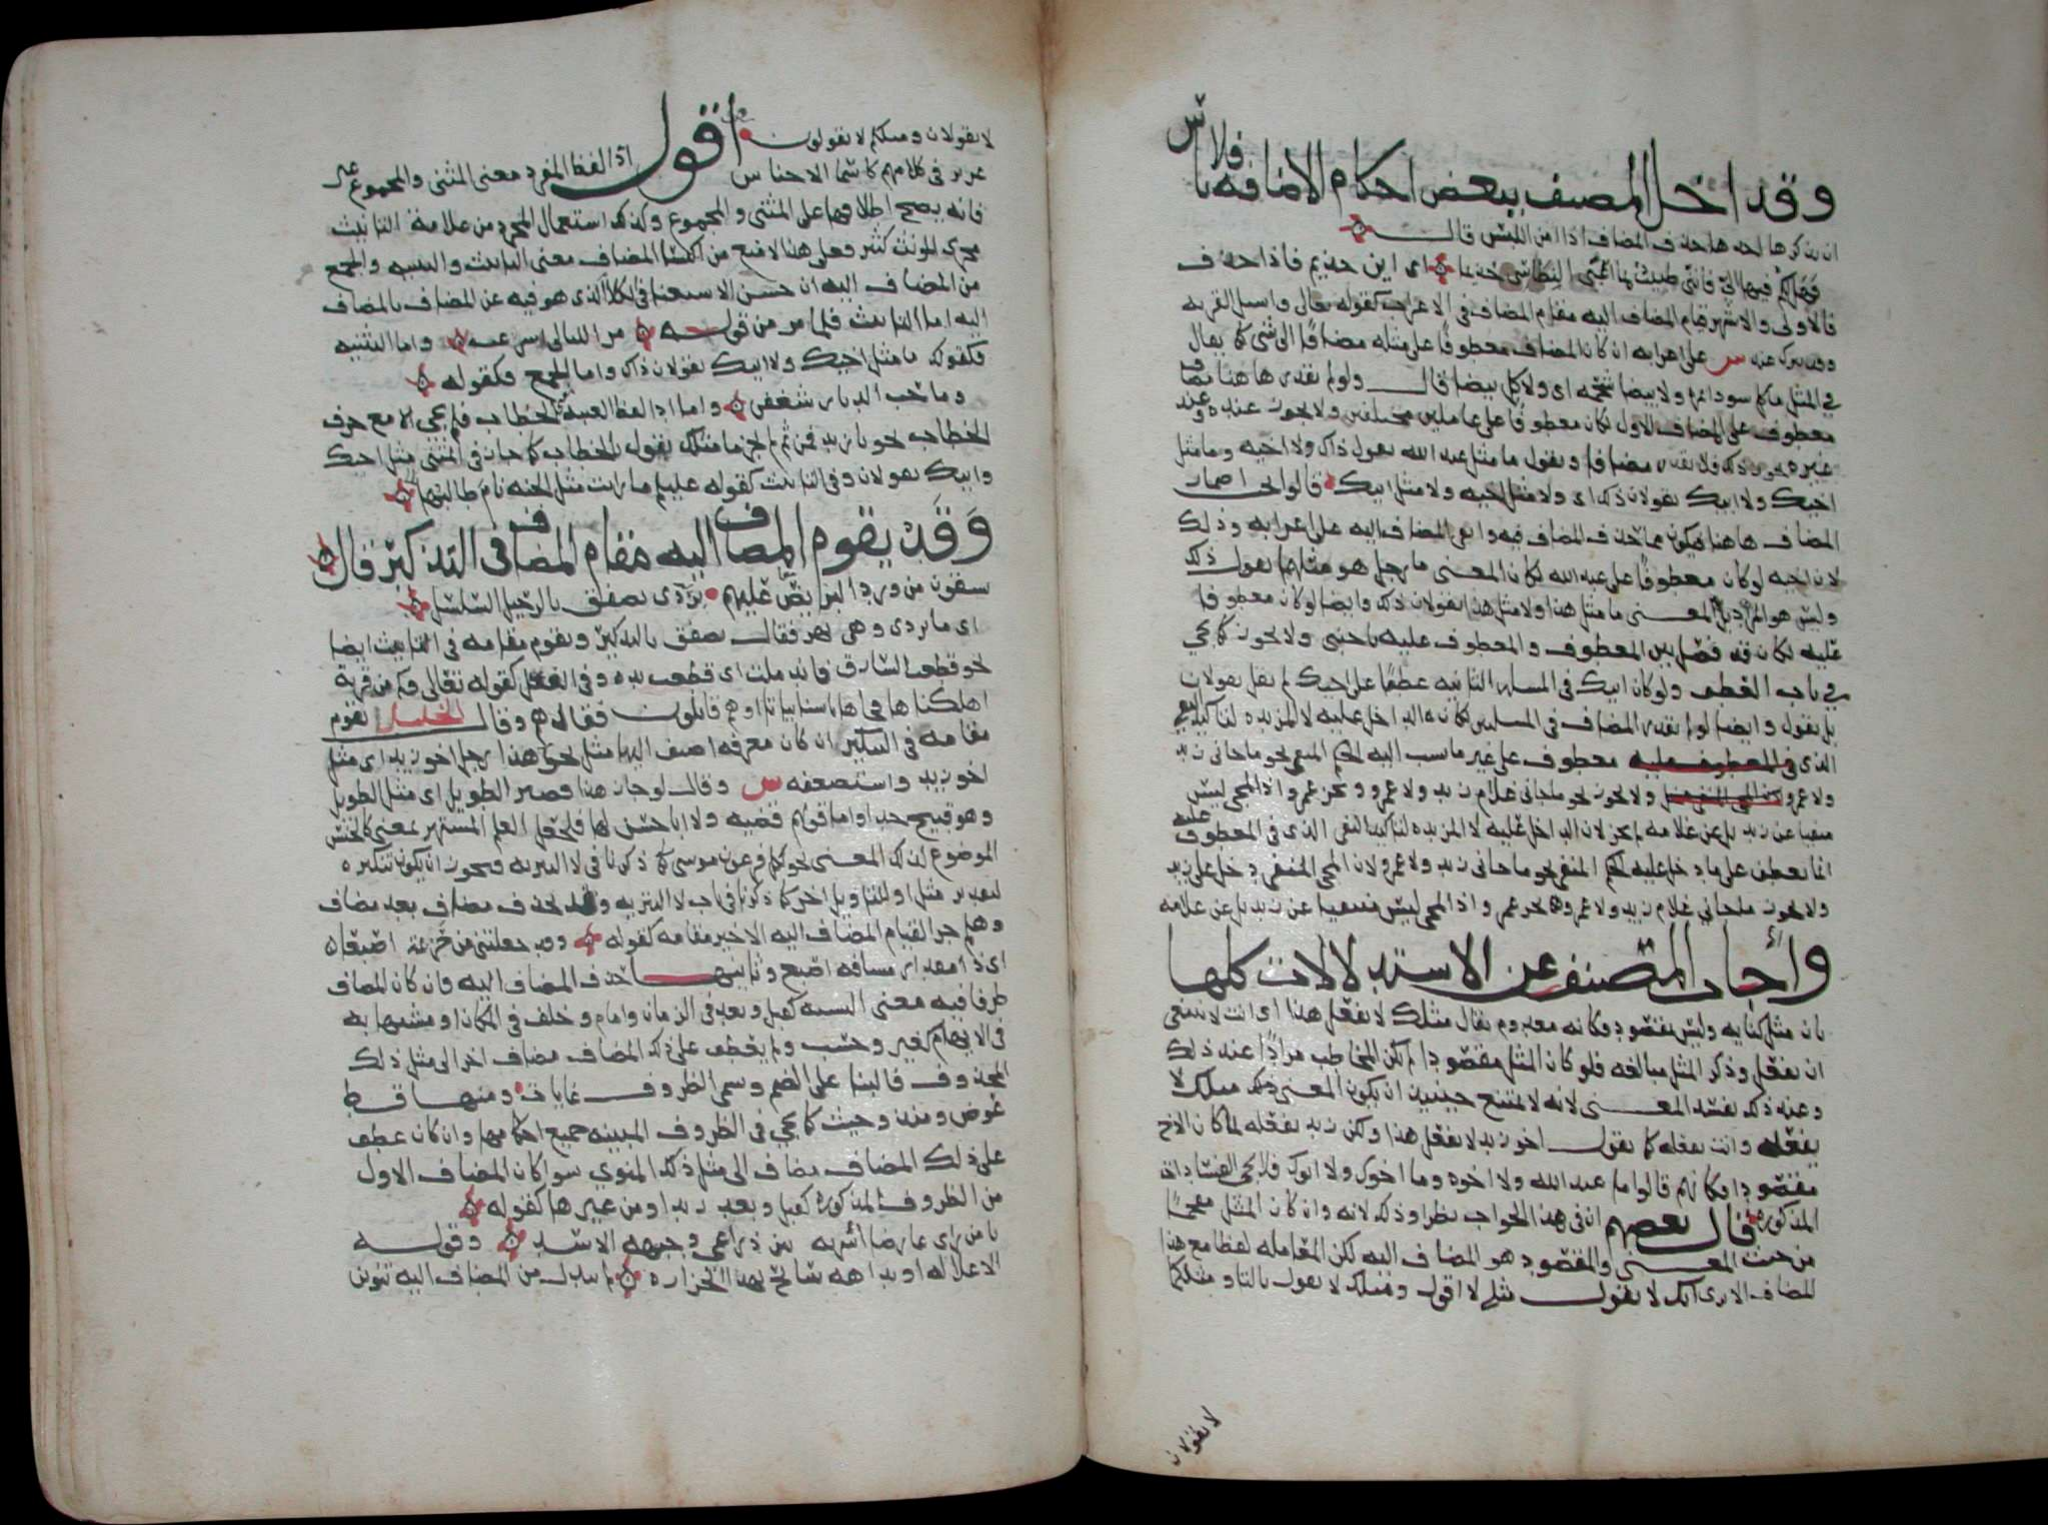 وقد اخل المصنف ببعض احكام الاضافه فلا باس
ان نذكرها احدها حذف المضاف اذا امن اللبس قال
فهل لكم فيها الى فانني طبيب بما اعيى النطاسي حذيما اى ابن حذيم فاذا حذف
فالاولى والاشهر قيام المضاف اليه مقام المضاف فى الاعراب كقوله تعالى واسئل القريه
وقد يترك عند س على اعرابه ان كان المضاف معطوفا على مثله مضافا الى شئ كما يقال
في المثل ما كل سودا تمره ولا بيضا شحمه اى ولا كل بيضا قال ولو لم نقدر هاهنا مضاف
معطوف على المضاف الاول لكان معطوفا على عاملين مختلفين ولا يجوز عنده وعند
غيره يجوز ذلك فلا نقدر مضافا ونقول ما مثل عبد الله يقول ذاك ولا اخيه وما مثل
اخيك ولا ابيك يقولان ذلك اى ولا مثل اخيه ولا مثل ابيك قالوا اضمار
المضاف هاهنا ليكون مما حذف المضاف فيه وابقى المضاف اليه على اعرابه وذلك
لان اخيه لو كان معطوفا على عبد الله لكان المعنى ما رجل هو مثلهما يقول ذلك
وليس هو المراد بل المعنى ما مثل هذا ولا مثل هذا يقولان ذلك وايضا لو كان معطوفا
عليه لكان قد فصل بين المعطوف والمعطوف عليه باجنبى ولا يجوز كما يجي
في باب العطف ولو كان ابيك فى المساله الثانيه عطفا على اخيك لم يقل يقولان
بل يقول وايضا لو لم نقدر المضاف فى المسلتين لكان لا الداخل عليه لا المزيده لتاكيد النفي
الذى فى المعطوف عليه معطوف على غير ما نسب اليه الحكم المنفي نحو ما جاني زيد
ولا عمرو ولا يجوز نحو ما جاني غلام زيد ولا عمرو وبجر عمرو اذ المجي ليس
منفيا عن زيد بل عن غلامه لم يجز لان الداخل عليه لا المزيده لتاكيد النفى الذى فى المعطوف عليه
انما يعطف على ما دخل عليه الحكم المنفي نحو ما جاني زيد ولا عمرو لان المجي المنفي دخل على زيد
ولا يجوز ما جاني غلام زيد ولا عمرو بجر عمرو اذ المجي ليس منفيا عن زيد بل عن غلامه
وأجاب المصنف عن الاستدلالات كلها
بان مثل كنايه وليس بمقصود وكانه معدوم يقال مثلك لا يفعل هذا اى انت لا ينبغى
ان تفعل وذكر المثل مبالغه فلو كان المثل مقصودا لم يكن المخاطب مرادا عند ذلك
وعند ذلك يفسد المعنى لانه لا يمتنع حينئذ ان يكون المعنى ذلك مثلك لا
يفعله وانت تفعله كما تقول اخو زيد لا يفعل هذا ولكن زيد يفعله لما كان الاخ
مقصودا فكانهم قالوا ما عبد الله ولا اخوه وما اخوك ولا ابوك فلا يجي الفساد ات
المذكوره قال بعضهم ان فى هذا الجواب نظرا وذلك لانه وان كان المثل مقحما
من حيث المعنى والمقصود هو المضاف اليه لكن المعامله لفظا مع هذا
المضاف الا ترى انك لا تقول مثلي لا اقول ومثلك لا تقول بالتا ومثلكما
لا تقولان
لا تقولان ومثلكم لا تقولون اقول اذا اللفظ المفرد معنى المثنى والمجموع غير
عزيز فى كلامهم كاسما الاجناس
فانه يصح اطلاقها على المثنى والمجموع وكذلك استعمال المجرد من علامة التانيث
مجرى المونث كثير فعلى هذا لا منع من اكتسا المضاف معنى التانيث والتثنيه والجمع
من المضاف اليه ان حسن الاستغنا فى الكلام الذى هو فيه عن المضاف بالمضاف
اليه اما التانيث فلما مر من قوله مر الليالى اسرعت واما التثنيه
فكقولك ما مثل اخيك ولا ابيك يقولان ذاك واما الجمع فكقوله
وما حب الديار شغفن واما اللفظ الغيبه الخطاب فلم يجى الا مع حرف
الخطاب نحو يا زيد فمن ثم لم يجز ما مثلك تقول للخطاب كما جاز فى المثنى مثل اخيك
وابيك يقولان وفى التانيث كقوله عليه ما رايت مثل الجنه نام طالبها
وقد يقوم المضاف اليه مقام المضاف فى التذكير قال
يسقون من ورد البريص عليهم بردى يصفق بالرحيق السلسل
اى ما بردى وهى نهر فقال يصفق بالتذكير ويقوم مقامه فى التانيث ايضا
نحو قطعت السارق فاندملت اى قطعت يده وفى العقل كقوله تعالى وكم من قرية
اهلكناها فجاها باسنا بياتا او هم قائلون فقال هم وقال الخليل يقوم
مقامه فى التنكير ان كان معرفه اضيف اليها مثل نحو هذا رجل اخو زيد اى مثل
اخو زيد واستضعفه س وقال لو جاز هذا قصير الطويل اى مثل الطويل
وهو قبيح جدا واما قولهم قضيه ولا ابا حسن لها فلجعل العلم المشتهر بمعنى كالجنس
الموضوع لذلك المعنى نحو لكل فرعون موسى كما ذكرنا فى لا التبريه ويجوز ان يكون تنكيره
لتقدير مثل او للتاويل اخر كما ذكرنا فى باب لا التبريه وقد يحذف مضاف بعد مضاف
وهلم جرا لقيام المضاف اليه الاخير مقامه كقوله وقد جعلتني من حزيمة اصبعا
اى ذا مقدار مسافه اصبع وثانيها حذف المضاف اليه فان كان المضاف
ظرفا فيه معنى النسبه كقبل وبعد فى الزمان وامام وخلف فى المكان او مشبها به
فى الابهام كغير وحسب ولم يعطف على ذلك المضاف مضاف اخر الى مثل ذلك
المحذوف فالبنا على الضم وسمى الظروف غايات ومنها قط
عوض ومنذ وحيث كما يجي فى الظروف المبنيه جميع احكامها وان كان عطف
على ذلك المضاف مضاف الى مثل ذلك المنوي سوا كان المضاف الاول
من الظروف المذكوره كقبل وبعد زيد او من غيرها كقوله
يا من راى عارضا أسر به بين ذراعي وجبهه الاسد وقوله
الا علاله او بداهه سابح نهد الجزاره لم يبدل من المضاف اليه تنوين